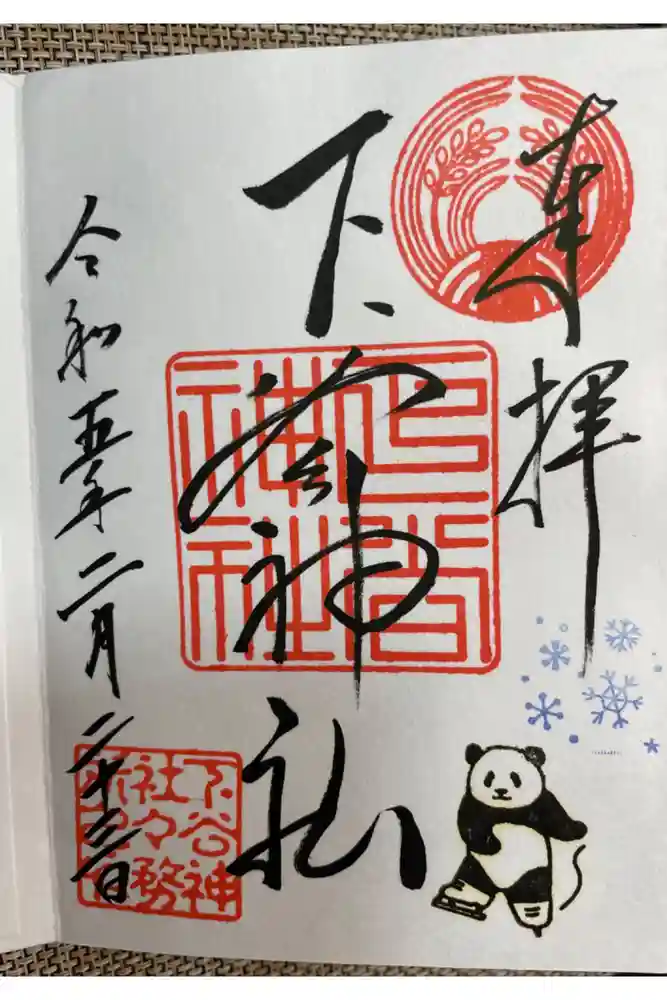 奉拝
下谷神社
下谷神社
下谷神
社々務
令和五年二月二十三日